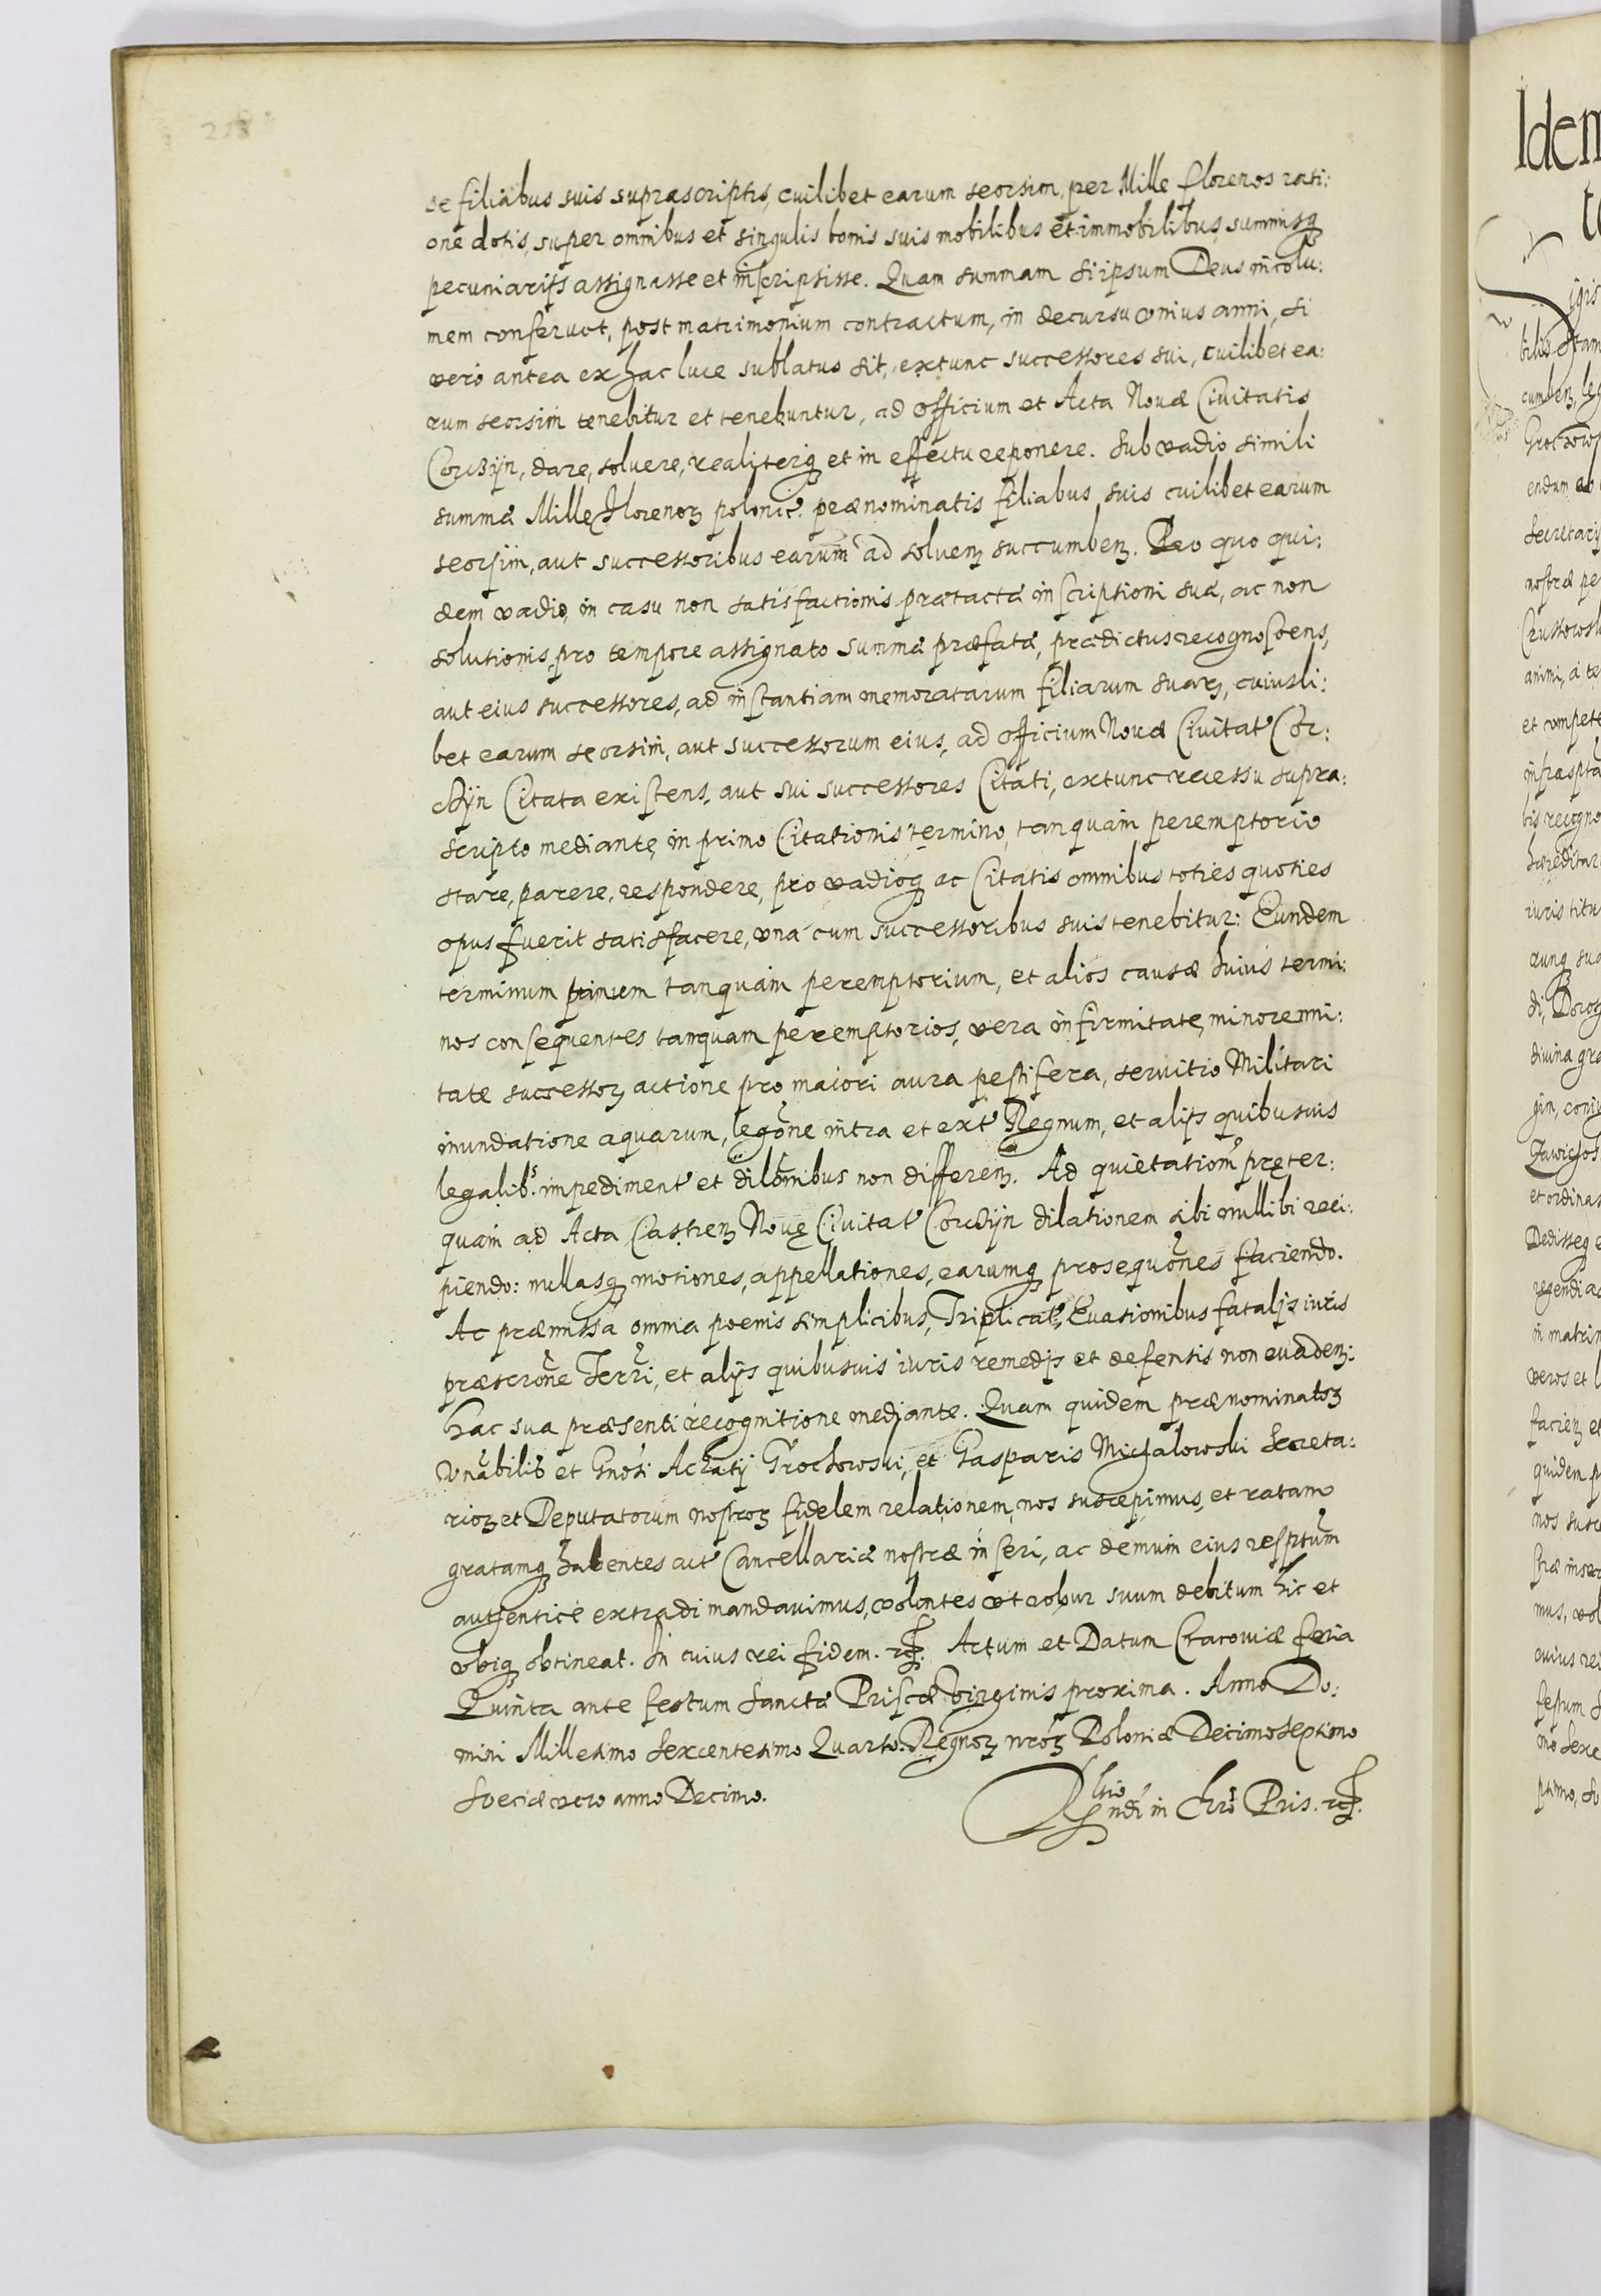 258
se filiabus suis suprascriptis, cuilibet earum seorsim, per Mille florenos rati:
one dotis, super omnibus et singulis bonis suis mobilibus et immobilibus, summisq3
pecuniarijs assignasse et inscripsisse. Quam summam si ipsum Deus incolu:
mem conservat, post matrimonium contractum, in decursu vnius anni, si
vero antea ex hac luce sublatus sit, extunc successores sui, cuilibet ea:
rum seorsim tenebitur et tenebuntur, ad officium et Acta Nouæ Ciuitatis
Corcżyn, dare, soluere, realiterq3 et in effectu reponere. Sub vadio simili
summæ Mille Floreno3 polonic. prænominatis filiabus suis cuilibet earum
seorsim, aut successoribus earum ad soluen3 succumben3. Pro quo qui:
dem vadio, in casu non satisfactionis prætactæ inscriptioni suæ, ac non
solutionis pro tempore assignato summæ præfatæ, prædictus recognoscens,
aut eius successores, ad instantiam memoratarum filiarum suar3, cuiusli:
bet earum seorsim, aut successorum eius, ad officium Nouæ Ciuitat Cor:
cżyn Citata existens, aut sui successores Citati, extunc recessu supra:
scripto mediante, in primo Citationis termino, tanquam peremptorio
stare, parere, respondere, pro vadioq3 ac Citatis omnibus toties quoties
opus fuerit satisfacere, vna cum successoribus suis tenebitur: Eundem
terminum primum tanquam peremptorium, et alios causæ huius termi:
nos consequentes tanquam peremptorios, vera infirmitate, minorenni:
tate successor3 actione pro maiori aura pestifera, seruitio Militari
inundatione aquarum, legone intra et ext Regnum, et alijs quibusuis
legalib.s impediment et dilonibus non differen3. Ad quietationem pręter:
quam ad Acta Castren3 Nouę Ciuitat Corcżyn dilationem sibi nullibi reci:
piendo: nullasq3 motiones, appellationes, earumq3 prosequones faciendo.
Ac præmissa omnia poenis simplicibus, Triplicat, Euasionibus fatalijs iuris
præscrone Terri, et alijs quibusuis iuris remedijs et defensis non euaden3:
hac sua præsenti recognitione mediante. Quam quidem prænominato3
Vnabilis et Gnosi Achatij Grochowski, et Gasparis Michalowski Secreta:
rio3 et Deputatorum nostro3 fidelem relationem, nos suscepimus, et ratam
gratamq3 habentes act Cancellariæ nostræ inseri, ac demum eius resptum
authentice extradi mandauimus, volentes vt robur suum debitum hic et
vbiq3 obtineat. In cuius rei fidem. etc. Actum et Datum Cracouiæ feria
Quinta ante festum Sanctæ Priscæ Virginis proxima. Anno Do:
mini Millesimo Sexcentesimo Quarto. Regno3 nro3 Poloniæ Decimoseptimo
Sveciæ vero anno Decimo.
Rltio
Rndi in Chro Pris. etc.